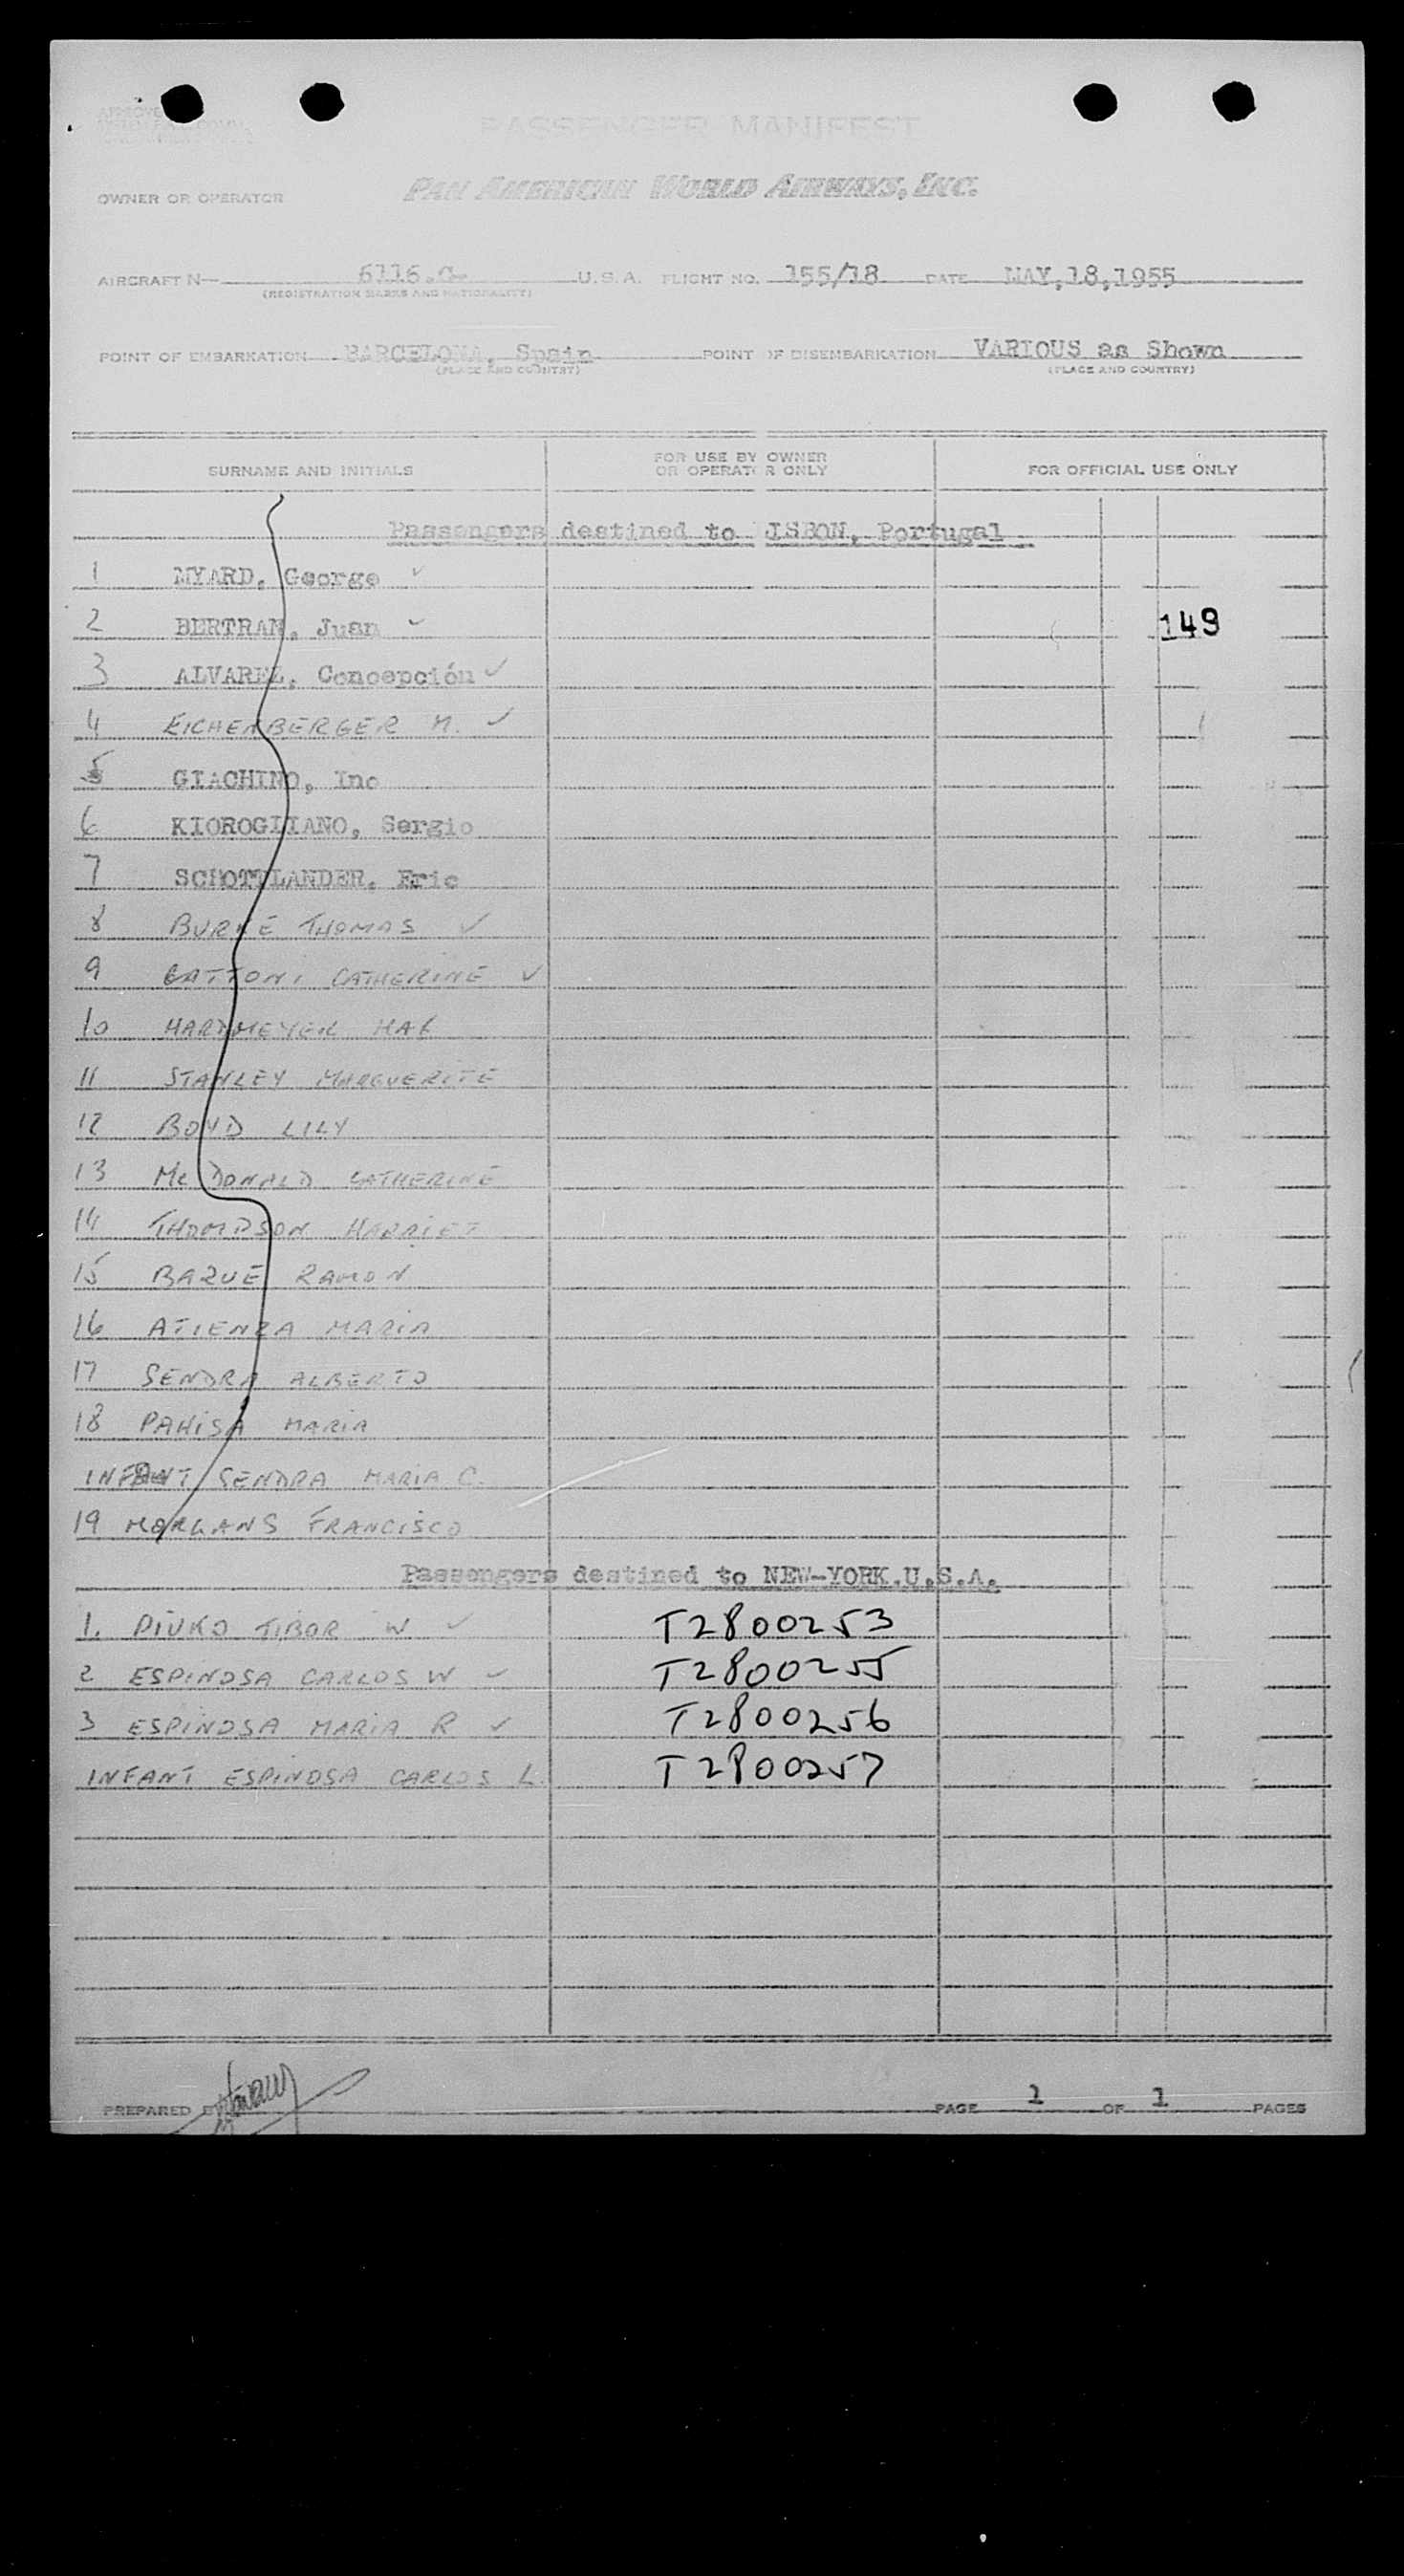 PASSENGER MANIFEST
OWNER OR OPERATOR PAN AMERICAN WORLD AIRWAYS, INC.
AIRCRAFT N— 6116.C- U.S.A. FLIGHT NO. 155/18 DATE MAY,18,1955
(REGISTRATION MARKS AND NATIONALITY)
POINT OF EMBARKATION BARCELONA, Spain POINT OF DISEMBARKATION VARIOUS as Shown
(PLACE AND COUNTRY) (PLACE AND COUNTRY)
SURNAME AND INITIALS FOR USE BY OWNER OR OPERATOR ONLY FOR OFFICIAL USE ONLY
Passengers destined to LISBON, Portugal
1 MYARD, George ✓
2 BERTRAN, Juan ✓ 149
3 ALVAREZ, Concepción ✓
4 EICHENBERGER M. ✓
5 GIACHINO, Ino
6 KIOROGLIANO, Sergio
7 SCHOTTLANDER, Eric
8 BURKE THOMAS ✓
9 GATTONI CATHERINE ✓
10 HARDMEYER
11 STANLEY MARGUERITE
12 BOYD LILY
13 Mc DONALD CATHERINE
14 THOMPSON HARRIET
15 BAZUE RAMON
16 ATIENZA MARIA
17 SENDRA ALBERTO
18 PAHISA MARIA
INFANT SENDRA MARIA C.
19 MORGANS FRANCISCO
Passengers destined to NEW-YORK.U.S.A.
1. DIUKO TIBOR W ✓ T2800253
2 ESPINOSA CARLOS W ✓ T2800255
3 ESPINOSA MARIA R ✓ T2800256
INFANT ESPINOSA CARLOS L. T2800257
PREPARED BY PAGE 1 OF 1 PAGES